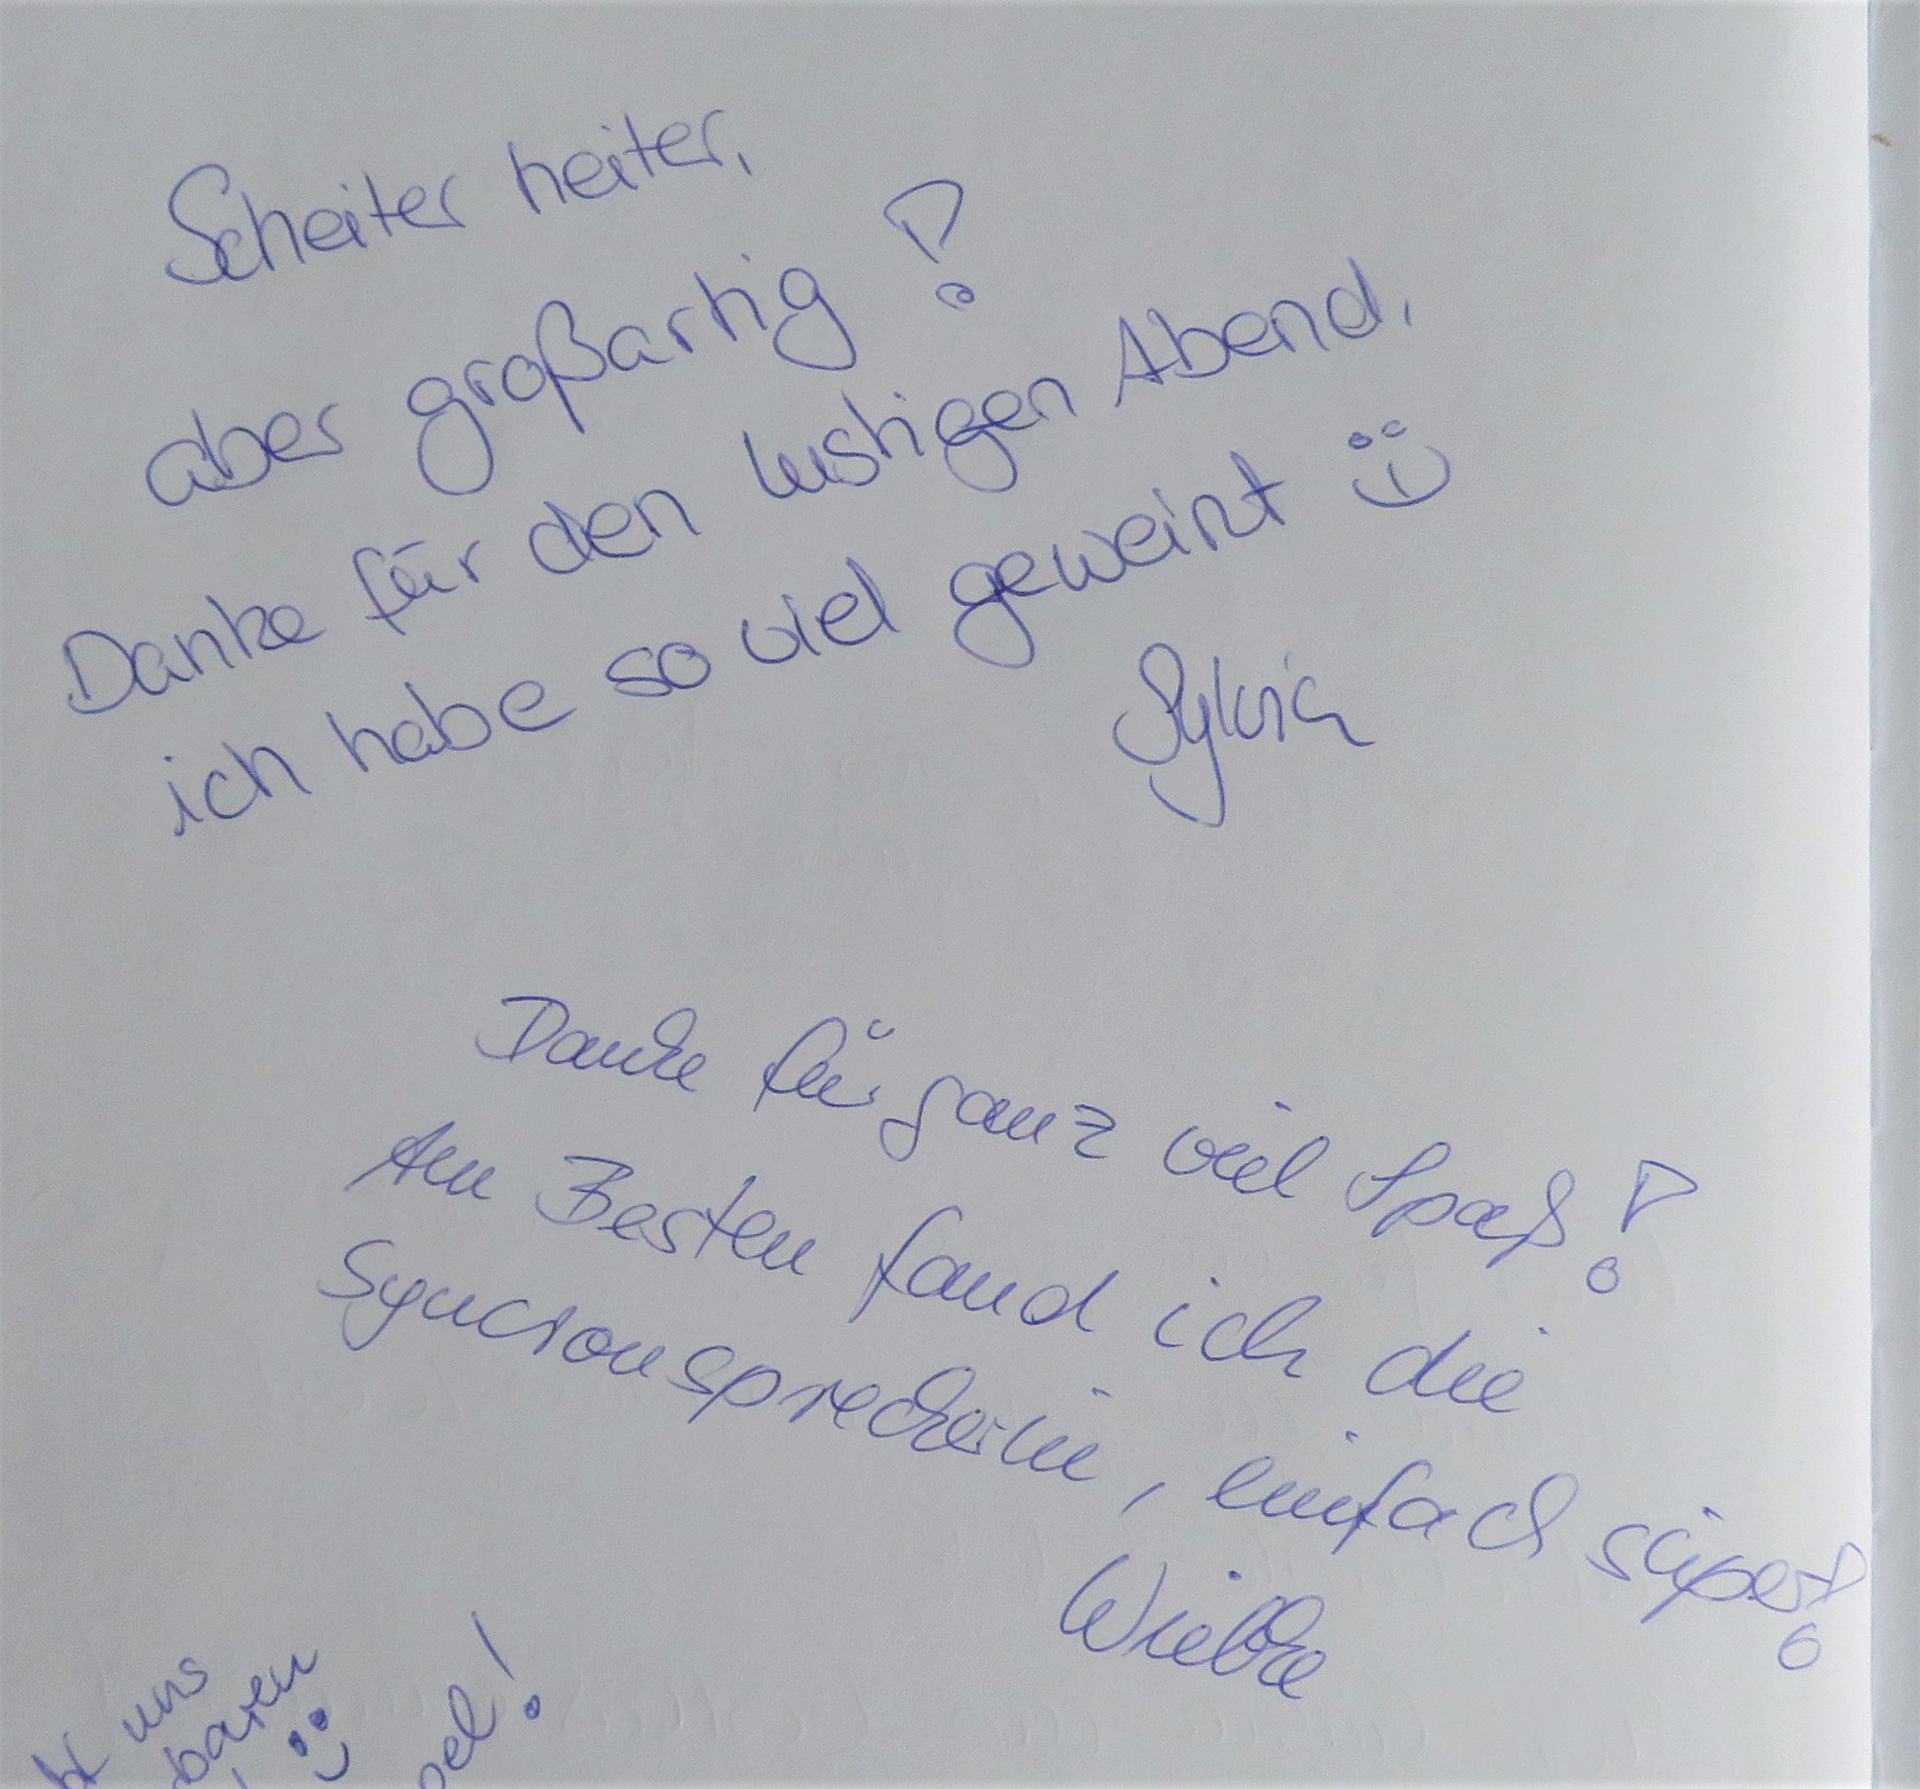 Scheiter heiter,
aber großartig!
Danke für den lustigen Abend,
ich habe so viel geweint
Sylvia
Danke für ganz viel Spaß!
Am Besten fand ich die
Syncronsprecherin, einfach super!
Wiebke
uns